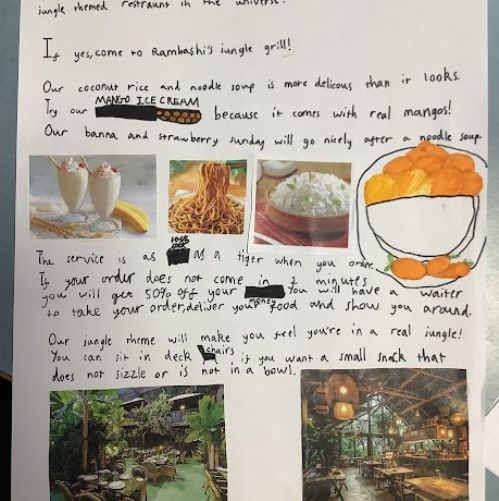 jungle themed restraunt in the universe?
If yes, come to Rambashi's jungle grill!
Our coconut rice and noodle soup is more delicous than it looks.
MANGO ICE CREAM
Try our because it comes with real mangos!
Our banna and strawberry sunday will go nicely after a noodle soup.
The service is as as a tiger when you order.
If your order does not come in 2 minutes
you will get 50% off your money You will have a waiter
to take your order, deliver your food and show you around.
Our jungle theme will make you feel you're in a real jungle!
You can sit in deck chairs if you want a small snack that
does not sizzle or is not in a bowl.